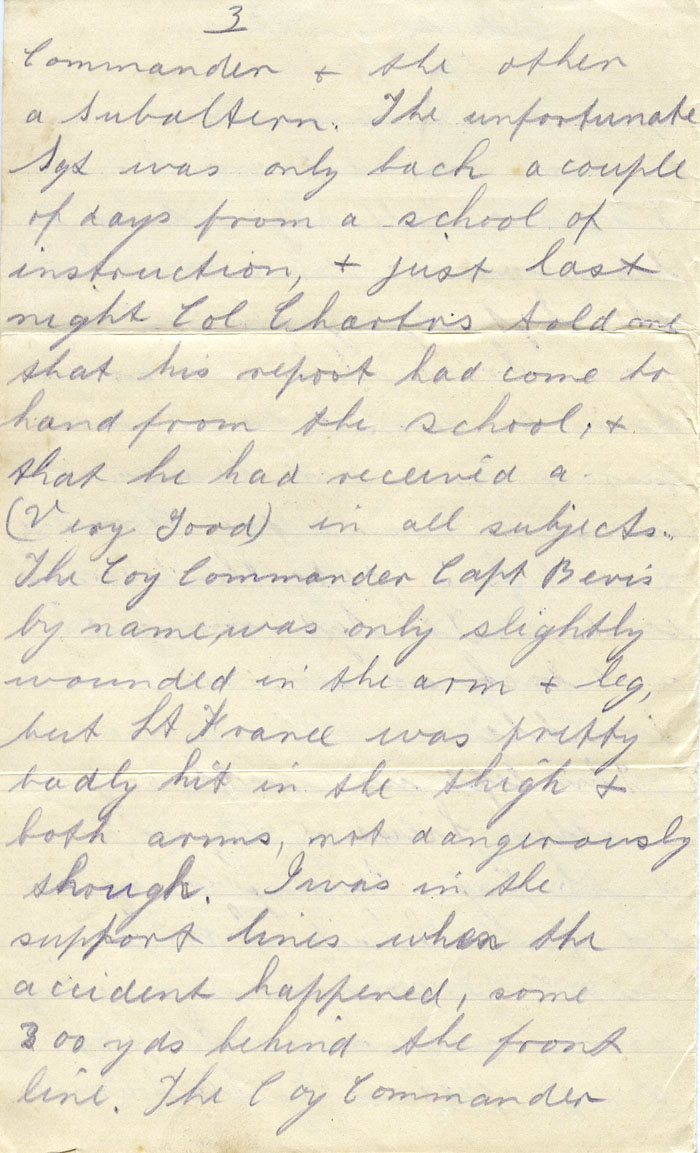 3
Commander + the other
a Subaltern. The unfortunate
Sgt was only back a couple
of days from a school of
instruction, + just last
night Col Chartris told me
that his report had come to
hand from the school, +
that he had received a
(Very Good) in all subjects.
The Coy Commander Capt Bevis
by name, was only slightly
wounded in the arm + leg,
but Lt France was pretty
badly hit in the thigh +
both arms, not dangerously
though. I was in the
support lines when the
accident happened, some
300 yds behind the front
line. The Coy Commander